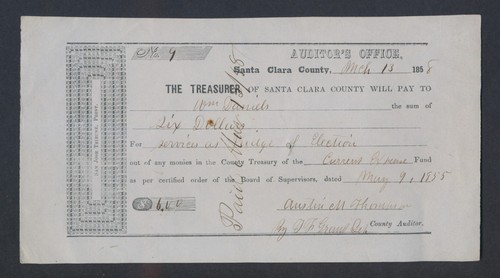 No. 9
AUDITOR'S OFFICE,
Santa Clara County, Mch 13 1858
THE TREASURER OF SANTA CLARA COUNTY WILL PAY TO
Wm Daniels the sum of
Six Dollars
For services as Judge of Election
out of any monies in the County Treasury of the Current Expense Fund
as per certified order of the Board of Supervisors, dated May 9, 1855
$ 6.00
Austin M Thompson
County Auditor.
By
Paid
San Jose Tribune Print.